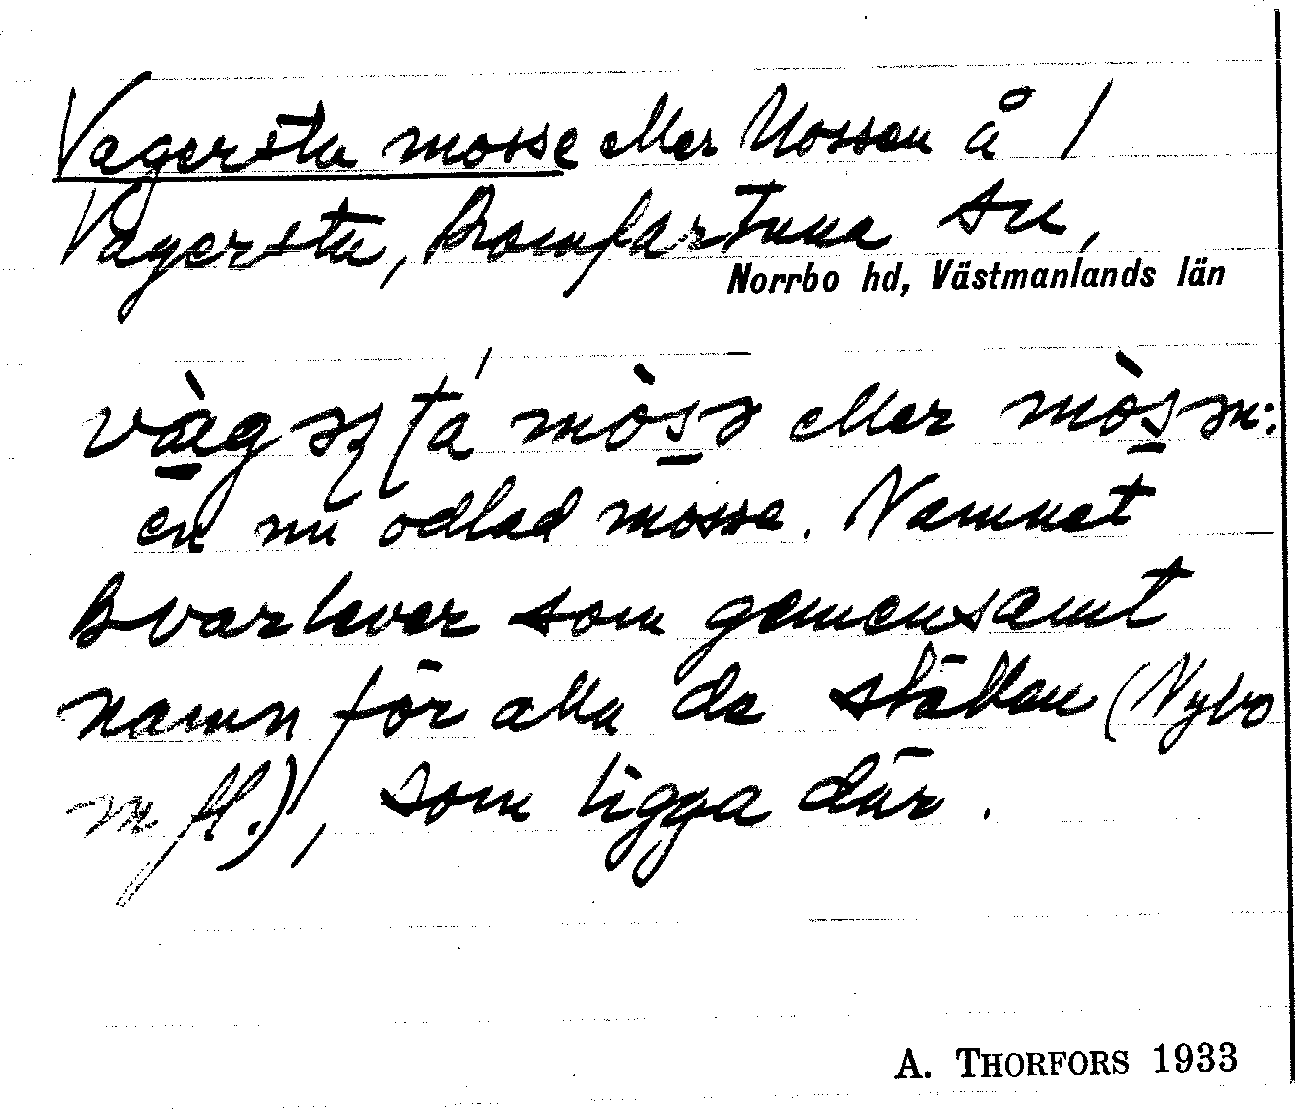 Vagersta mosse eller Mossen å /
Vagersta, Romfartuna sn,
Norrbo hd, Västmanlands län
mòsə eller mòsən:
en nu odlad mosse. Namnet
kvarlever som gemensamt
namn för alla de ställen (Nybo
m fl.), som ligga där.
A. THORFORS 1933